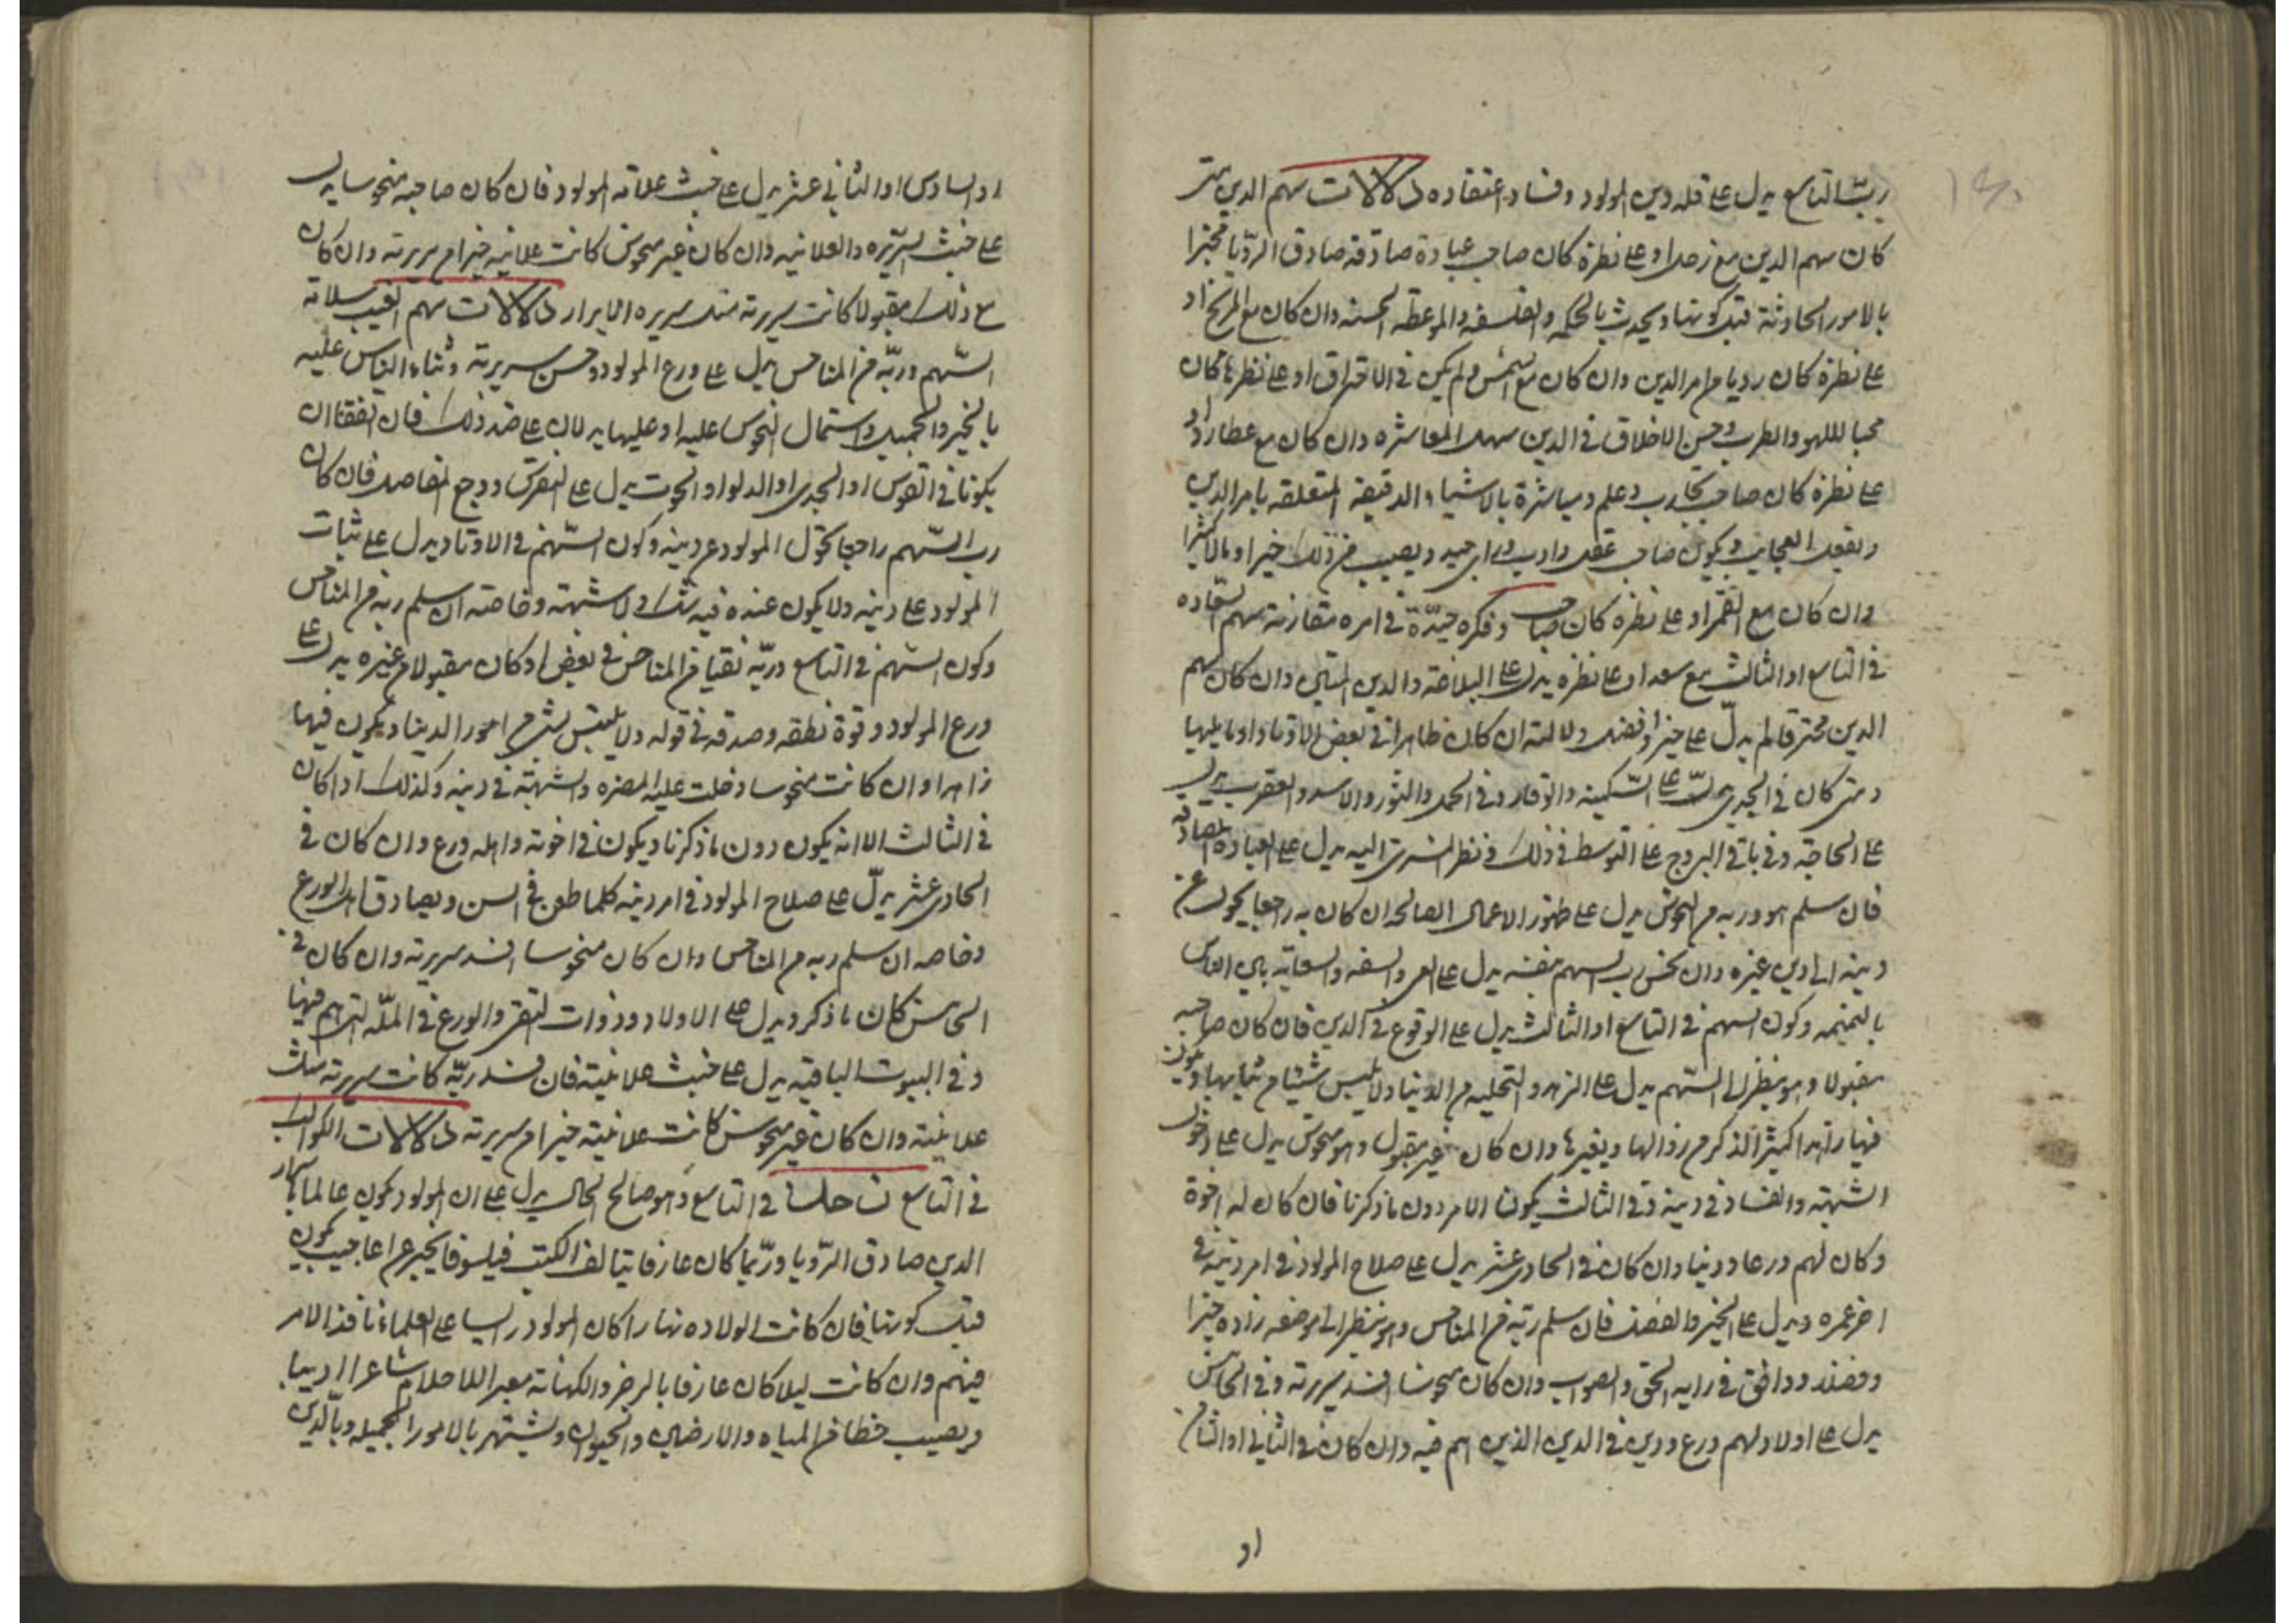 ربّ التاسع يدل على قله دين المولود وفساد اعتقاده دلالات سهم الدين متى
كان سهم الدين مع زحل او على نظرة كان صاحب عبادة صادقه صادق الرؤيا مخبرا
بالامور الحادثة قبل كونها ويحدث بالحكمه والفلسفه والموعظه الحسنه وان كان مع المريخ او
على نظرة كان رديا من امر الدين وان كان مع الشمس ولم يكن في الاحتراق او على نظرها كان
محبا للهو والطرب وحسن الاخلاق في الدين سهل المعاشره وان كان مع عطارد او
على نظرة كان صاحب تجارب وعلم ومباشرة بالاشياء الدقيقة المتعلقه بامر الدين
ويفعل العجايب ويكون صاحب عقل وادب وراى جيد ويصيب من ذلك خيرا ومالا كثيرا
وان كان مع القمر او على نظره كان صاحب وفكره جيدة في امره مقارنة سهم السعاده
في التاسع او الثالث مع سعد او على نظره يدل على البلاغة والدين المتين وان كان سهم
الدين محترقا لم يدلّ على خير وفضل ودلالته ان كان ظاهرا في بعض الاوتاد او ما يليها
ومتى كان في الجدى يدلّ على السّكينه والوقار وفي الحمل والثور والاسد والعقرب يدل
على وفي باقى البروج على التوسط في ذلك ونظر المشترى اليه يدل على العبادة الصادقه
فان سلم هو وربه من النحوس يدل على ظهور الاعمال الصالحه ان كان ربه راجعا يحول عن
دينه الى دين غيره وان نحس رب السهم بنفسه يدل على والسفه والسعاية بين الناس
بالنميمه وكون السهم في التاسع او الثالث يدل على الوقوع في الدين فان كان صاحبه
مقبولا وهو ينظر الى السّهم يدل على الزهد والتخليه من الدنيا ولا يلبس شيئا من ثيابها ويكون
فيها زاهدا كثير الذكر من زوالها وتغيرها وان كان غير مقبول وهو منحوس يدل على دخول
الشبهة والفساد في دينه وفي الثالث يكون الامر دون ما ذكرنا فان كان له اخوة
وكان لهم ورعا ودينا وان كان في الحادى عشر يدل على صلاح المولود في امر دينه في
اخر عمره ويدل على الخير والفضل فان سلم ربّه من المناحس وهو ينظر الى موضعه زاده خيرا
وفضلا ووافق في رايه الحق والصواب وان كان منحوسا افسد سريرته وفي الخامس
يدل على اولاد لهم ورع ودين في الدين الذين هم فيه وان كان في الثاني او الثامن
او
او السادس او الثاني عشر يدل على خبث علانية المولود فان كان صاحبه منحوسا يدل
على خبث السريره والعلانيه وان كان غير منحوس كانت علانيته خيرا من سريرته وان كان
مع ذلك مقبولا كانت سريرته مثل سريره الابرار دلالات سهم الغيب سلامة
السّهم وربّه من المناحس يدل على ورع المولود وحسن سريرته وثناء الناس عليه
بالخير والجميل واشتمال النحوس عليه او عليها يدلان على ضد ذلك فان اتفقا ان
يكونا في القوس او الجدى او الدلو او الحوت يدل على النقرس ووجع المفاصل فان كان
رب السّهم راجعا تحوّل المولود عن دينه وكون السّهم في الاوتاد يدل على ثبات
المولود على دينه ولا يكون عنده فيه شك ولا شبهته وخاصته ان سلم ربه من المناحس
وكون السّهم في التاسع وربّه نقيا من المناحس في بعض او كان مقبولا من غيره يدل على
ورع المولود وقوة نطقه وصدقه في قوله ولا يلتبس بشئ من امور الدينا ويكون فيها
زاهدا وان كانت منحوسا دخلت عليه المضره والشبهة في دينه وكذلك اذا كان
في الثالث الا انه يكون دون ما ذكرنا ويكون في اخوته واهله ورع وان كان في
الحادى عشر يدلّ على صلاح المولود في امر دينه كلما طعن في السن ويصادق اهل الورع
وخاصه ان سلم ربه من المناحس وان كان منحوسا افسد سريرته وان كان في
الخامس كان ما ذكر ويدل على الاولاد وذوات التقى والورع في الملّه التى هم فيها
وفي البيوت الباقيه يدل على خبث علانيته فان فسد ربّه كانت سريرته مثل
علانيته وان كان غير منحوس كانت علانيته خيرا من سريرته دلالات الكواكب
في التاسع زحل في التاسع وهو صالح الحال يدل على ان المولود يكون عالما باسرار
الدين صادق الرؤيا وربّما كان عارفا بتاليف الكتب فيلسوفا يخبر عن اعاجيب يكون
قبل كونها فان كانت الولاده نهارا كان المولود رايسا على العلماء نافذ الامر
فيهم وان كانت ليلا كان عارفا بالزجر والكهانة معبر اللاحلام شاعرا اديبا
ويصيب حظا من المياه والارضين والحيوان ويشتهر بالامور الجميله وبالدين